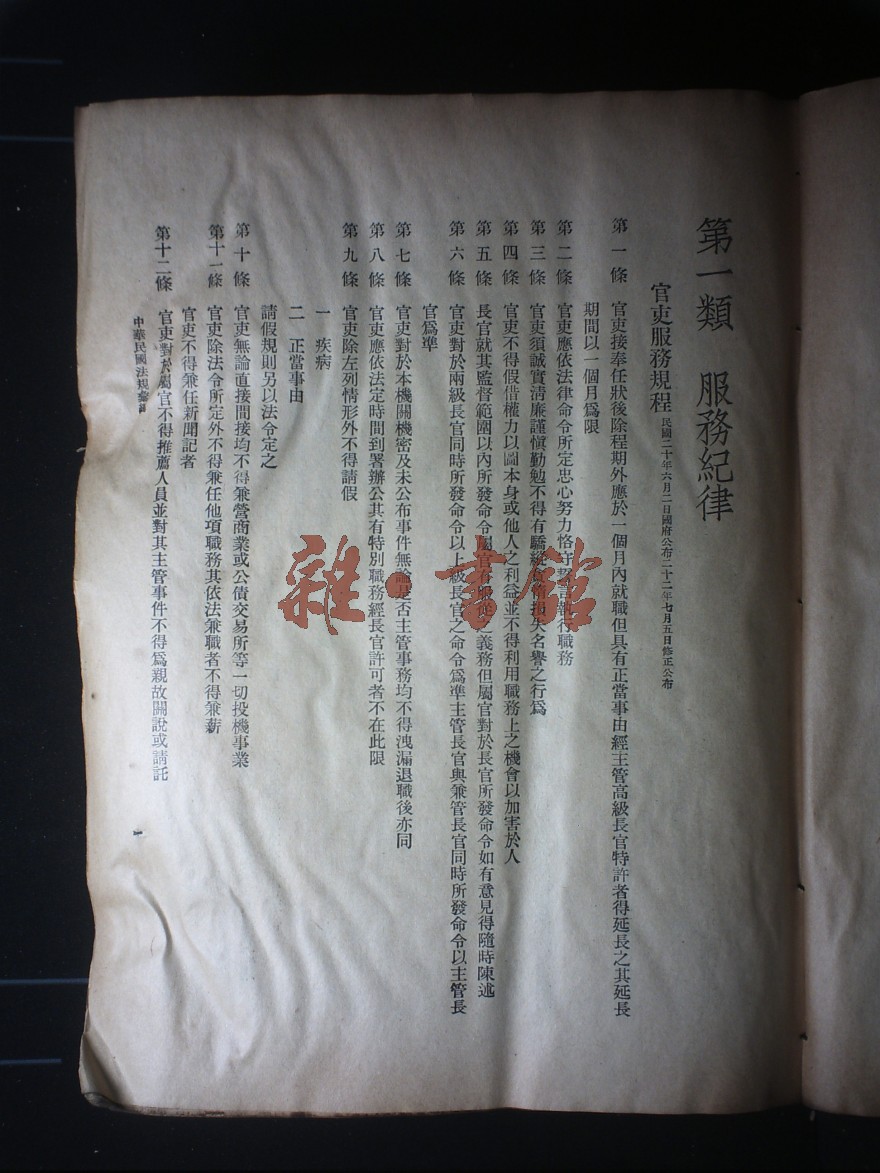 第一類　服務紀律
官吏服務規程 民國二十年六月二日國府公布二十二年七月五日修正公布
第一條　官吏接奉任狀後除程期外應於一個月內就職但具有正當事由經主管高級長官特許者得延長之其延長
期間以一個月爲限
第二條　官吏應依法律命令所定忠心努力恪守誓言執行職務
第三條　官吏須誠實淸廉謹愼勤勉不得有驕縱貪惰損失名譽之行爲
第四條　官吏不得假借權力以圖本身或他人之利益並不得利用職務上之機會以加害於人
第五條　長官就其監督範圍以內所發命令屬官有服從之義務但屬官對於長官所發命令如有意見得隨時陳述
第六條　官吏對於兩級長官同時所發命令以上級長官之命令爲準主管長官與兼管長官同時所發命令以主管長
官爲準
第七條　官吏對於本機關機密及未公布事件無論是否主管事務均不得洩漏退職後亦同
第八條　官吏應依法定時間到署辦公其有特別職務經長官許可者不在此限
第九條　官吏除左列情形外不得請假
一　疾病
二　正當事由
請假規則另以法令定之
第十條　官吏無論直接間接均不得兼營商業或公債交易所等一切投機事業
第十一條　官吏除法令所定外不得兼任他項職務其依法兼職者不得兼薪
官吏不得兼任新聞記者
第十二條　官吏對於屬官不得推薦人員並對其主管事件不得爲親故關說或請託
中華民國法規彙
一
雜·書館